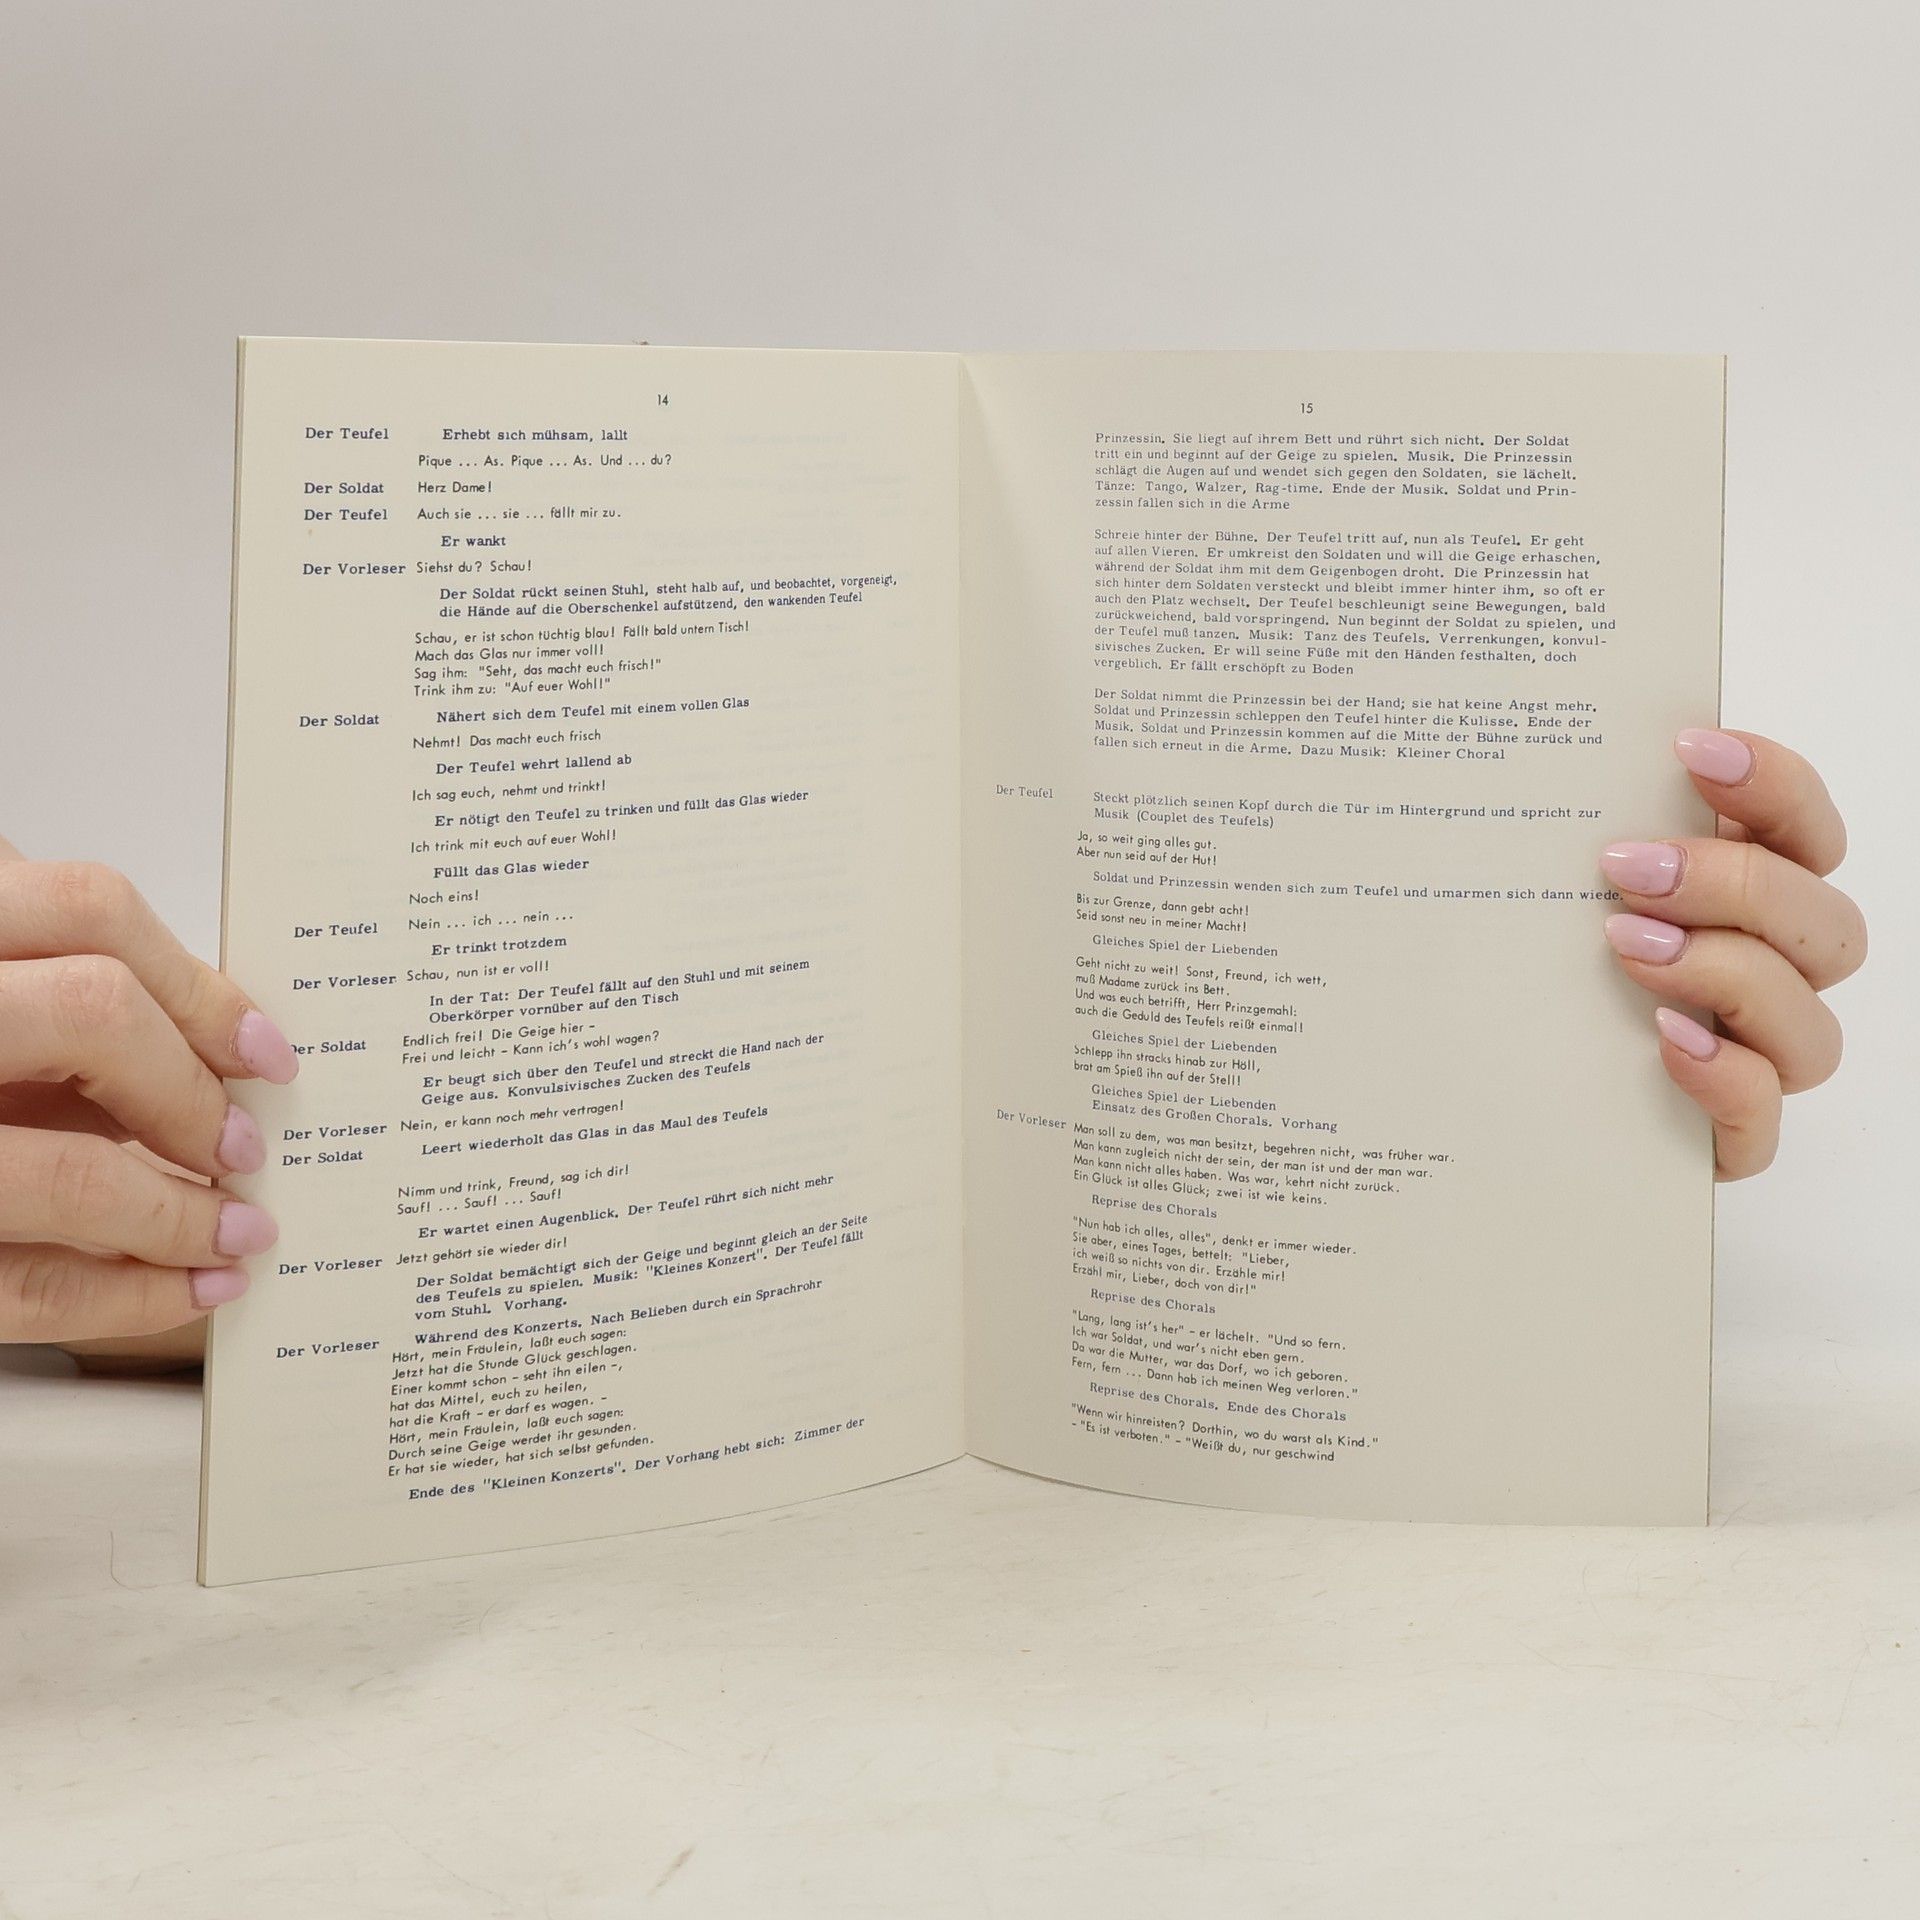 14
Der Teufel Erhebt sich mühsam, lallt
Pique ... As. Pique ... As. Und ... du?
Der Soldat Herz Dame!
Der Teufel Auch sie ... sie ... fällt mir zu.
Er wankt
Der Vorleser Siehst du? Schau!
Der Soldat rückt seinen Stuhl, steht halb auf, und beobachtet, vorgeneigt,
die Hände auf die Oberschenkel aufstützend, den wankenden Teufel
Schau, er ist schon tüchtig blau! Fällt bald untern Tisch!
Mach das Glas nur immer voll!
Sag ihm: "Seht, das macht euch frisch!"
Trink ihm zu: "Auf euer Wohl!"
Der Soldat Nähert sich dem Teufel mit einem vollen Glas
Nehmt! Das macht euch frisch
Der Teufel wehrt lallend ab
Ich sag euch, nehmt und trinkt!
Er nötigt den Teufel zu trinken und füllt das Glas wieder
Ich trink mit euch auf euer Wohl!
Füllt das Glas wieder
Noch eins!
Der Teufel Nein ... ich ... nein ...
Er trinkt trotzdem
Der Vorleser Schau, nun ist er voll!
In der Tat: Der Teufel fällt auf den Stuhl und mit seinem
Oberkörper vornüber auf den Tisch
Der Soldat Endlich frei! Die Geige hier –
Frei und leicht – Kann ich's wohl wagen?
Er beugt sich über den Teufel und streckt die Hand nach der
Geige aus. Konvulsivisches Zucken des Teufels
Der Vorleser Nein, er kann noch mehr vertragen!
Der Soldat Leert wiederholt das Glas in das Maul des Teufels
Nimm und trink, Freund, sag ich dir!
Sauf! ... Sauf! ... Sauf!
Er wartet einen Augenblick. Der Teufel rührt sich nicht mehr
Der Vorleser Jetzt gehört sie wieder dir!
Der Soldat bemächtigt sich der Geige und beginnt gleich an der Seite
des Teufels zu spielen. Musik: "Kleines Konzert". Der Teufel fällt
vom Stuhl. Vorhang.
Der Vorleser Während des Konzerts. Nach Belieben durch ein Sprachrohr
Hört, mein Fräulein, laßt euch sagen:
Jetzt hat die Stunde Glück geschlagen.
Einer kommt schon – seht ihn eilen –,
hat das Mittel, euch zu heilen,
hat die Kraft – er darf es wagen. –
Hört, mein Fräulein, laßt euch sagen:
Durch seine Geige werdet ihr gesunden.
Er hat sie wieder, hat sich selbst gefunden.
Ende des "Kleinen Konzerts". Der Vorhang hebt sich: Zimmer der
15
Prinzessin. Sie liegt auf ihrem Bett und rührt sich nicht. Der Soldat
tritt ein und beginnt auf der Geige zu spielen. Musik. Die Prinzessin
schlägt die Augen auf und wendet sich gegen den Soldaten, sie lächelt.
Tänze: Tango, Walzer, Rag-time. Ende der Musik. Soldat und Prin-
zessin fallen sich in die Arme
Schreie hinter der Bühne. Der Teufel tritt auf, nun als Teufel. Er geht
auf allen Vieren. Er umkreist den Soldaten und will die Geige erhaschen,
während der Soldat ihm mit dem Geigenbogen droht. Die Prinzessin hat
sich hinter dem Soldaten versteckt und bleibt immer hinter ihm, so oft er
auch den Platz wechselt. Der Teufel beschleunigt seine Bewegungen, bald
zurückweichend, bald vorspringend. Nun beginnt der Soldat zu spielen, und
der Teufel muß tanzen. Musik: Tanz des Teufels. Verrenkungen, konvul-
sivisches Zucken. Er will seine Füße mit den Händen festhalten, doch
vergeblich. Er fällt erschöpft zu Boden
Der Soldat nimmt die Prinzessin bei der Hand; sie hat keine Angst mehr.
Soldat und Prinzessin schleppen den Teufel hinter die Kulisse. Ende der
Musik. Soldat und Prinzessin kommen auf die Mitte der Bühne zurück und
fallen sich erneut in die Arme. Dazu Musik: Kleiner Choral
Der Teufel Steckt plötzlich seinen Kopf durch die Tür im Hintergrund und spricht zur
Musik (Couplet des Teufels)
Ja, so weit ging alles gut.
Aber nun seid auf der Hut!
Soldat und Prinzessin wenden sich zum Teufel und umarmen sich dann wieder
Bis zur Grenze, dann gebt acht!
Seid sonst neu in meiner Macht!
Gleiches Spiel der Liebenden
Geht nicht zu weit! Sonst, Freund, ich wett,
muß Madame zurück ins Bett.
Und was euch betrifft, Herr Prinzgemahl:
auch die Geduld des Teufels reißt einmal!
Gleiches Spiel der Liebenden
Schlepp ihn stracks hinab zur Höll,
brat am Spieß ihn auf der Stell!
Gleiches Spiel der Liebenden
Einsatz des Großen Chorals. Vorhang
Der Vorleser Man soll zu dem, was man besitzt, begehren nicht, was früher war.
Man kann zugleich nicht der sein, der man ist und der man war.
Man kann nicht alles haben. Was war, kehrt nicht zurück.
Ein Glück ist alles Glück; zwei ist wie keins.
Reprise des Chorals
"Nun hab ich alles, alles", denkt er immer wieder.
Sie aber, eines Tages, bettelt: "Lieber,
ich weiß so nichts von dir. Erzähle mir!
Erzähl mir, Lieber, doch von dir!"
Reprise des Chorals
"Lang, lang ist's her" – er lächelt. "Und so fern.
Ich war Soldat, und war's nicht eben gern.
Da war die Mutter, war das Dorf, wo ich geboren.
Fern, fern ... Dann hab ich meinen Weg verloren."
Reprise des Chorals. Ende des Chorals
"Wenn wir hinreisten? Dorthin, wo du warst als Kind."
– "Es ist verboten." – "Weißt du, nur geschwind